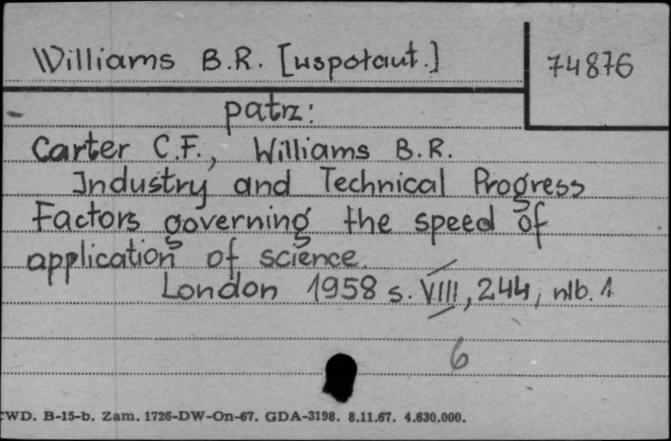 Williams B.R. [współaut.]
74876
patrz:
Carter C.F., Williams B.R.
Industry and Technical Progress
Factors governing the speed of
application of science
London 1958 s. VIII, 244, nlb. 1
6
CWD. B-15-b. Zam. 1726-DW-On-67. GDA-3198. 8.11.67. 4.630.000.